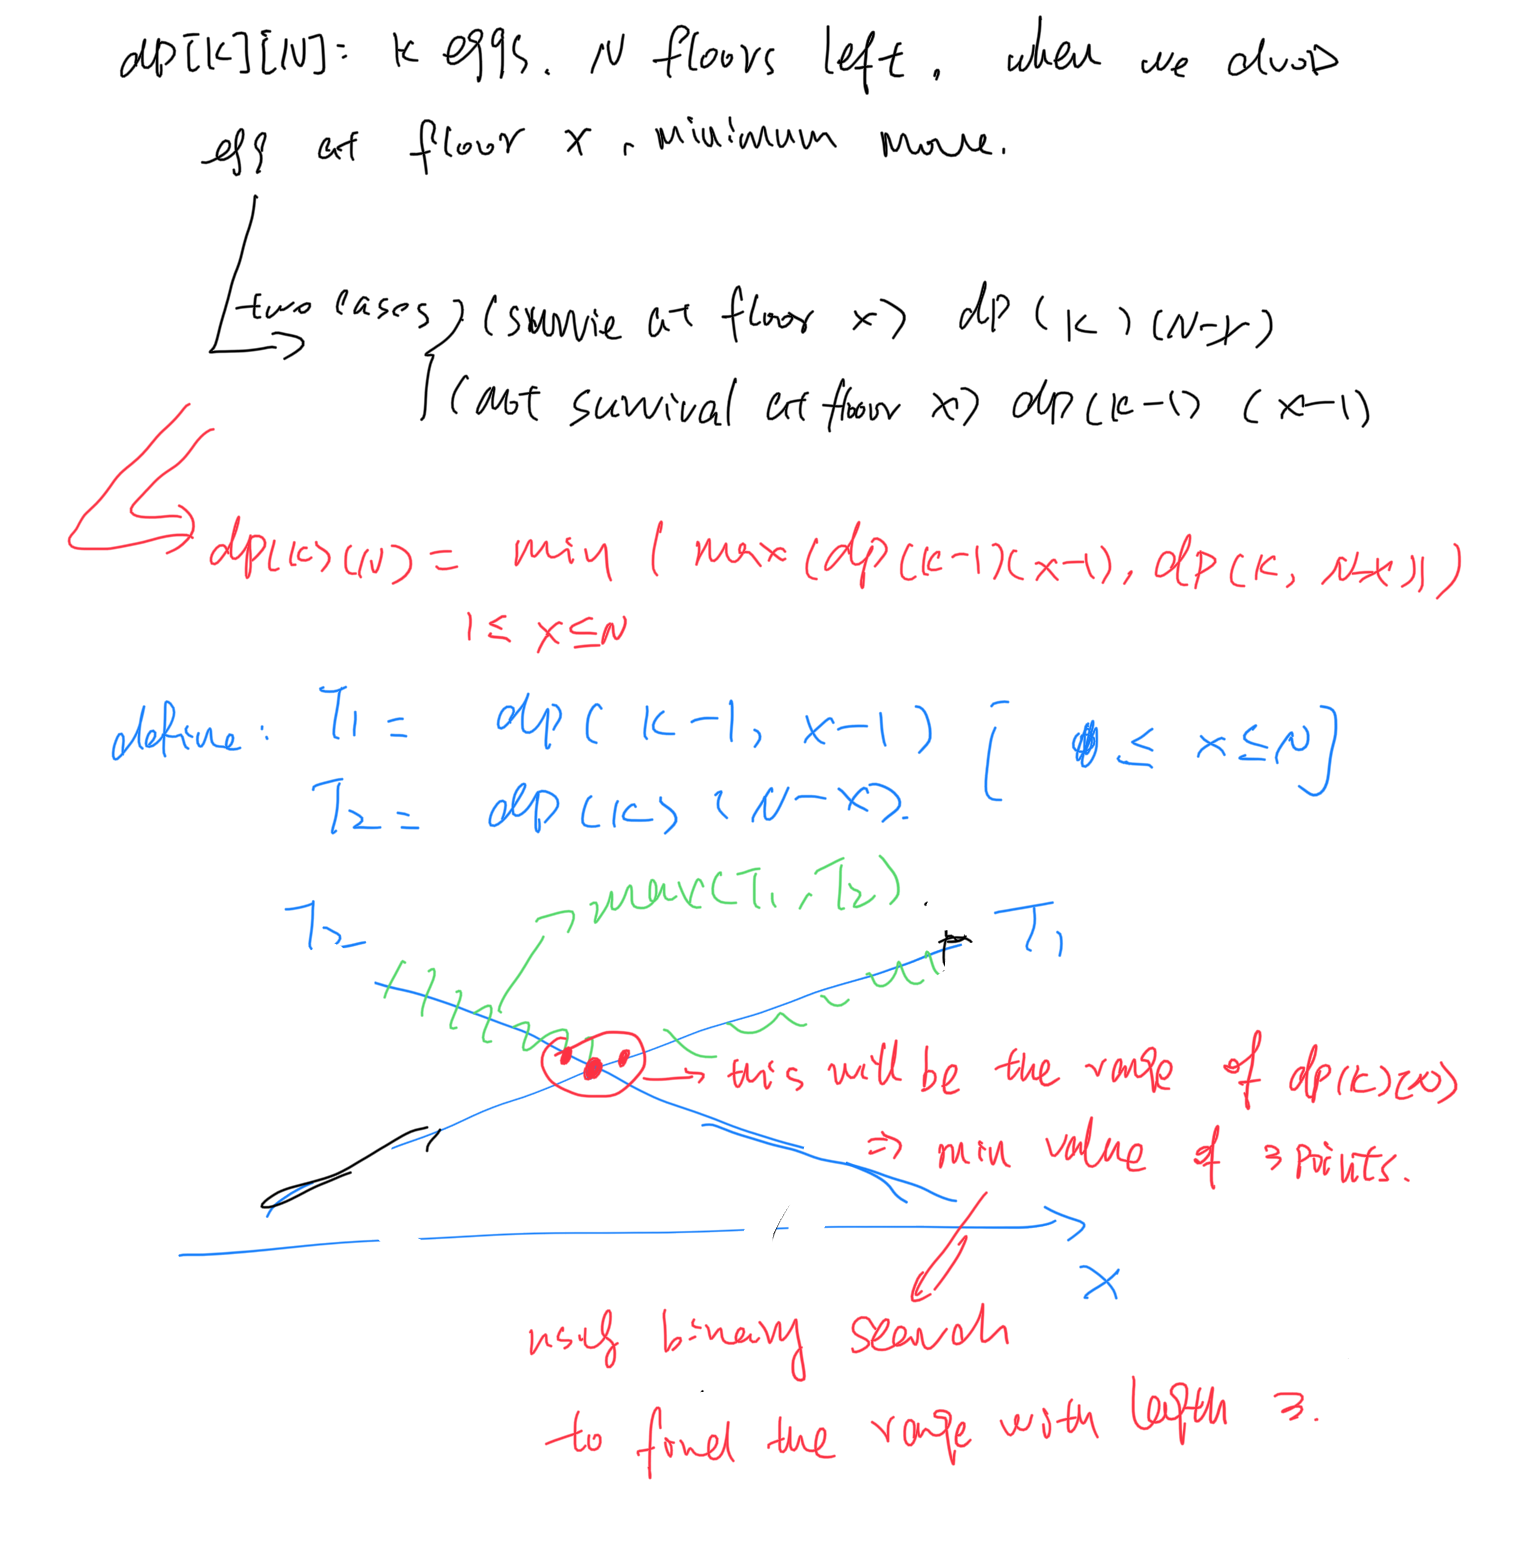 dp[K][N]: K eggs. N floors left, when we drop
egg at floor x, minimum move.
two cases
(survie at floor x) dp(K)(N-x)
(not survival at floor x) dp(K-1) (x-1)
dp(K)(N) = min (max(dp(K-1)(x-1), dp(K, N-x)))
1 ≤ x ≤ N
define: T1 = dp(K-1, x-1) [ ≤ x ≤ N]
T2 = dp(K)(N-x).
max(T1, T2).
T2
T1
this will be the range of dp(K)(N)
⇒ min value of 3 points.
x
using binary search
to find the range with length 3.